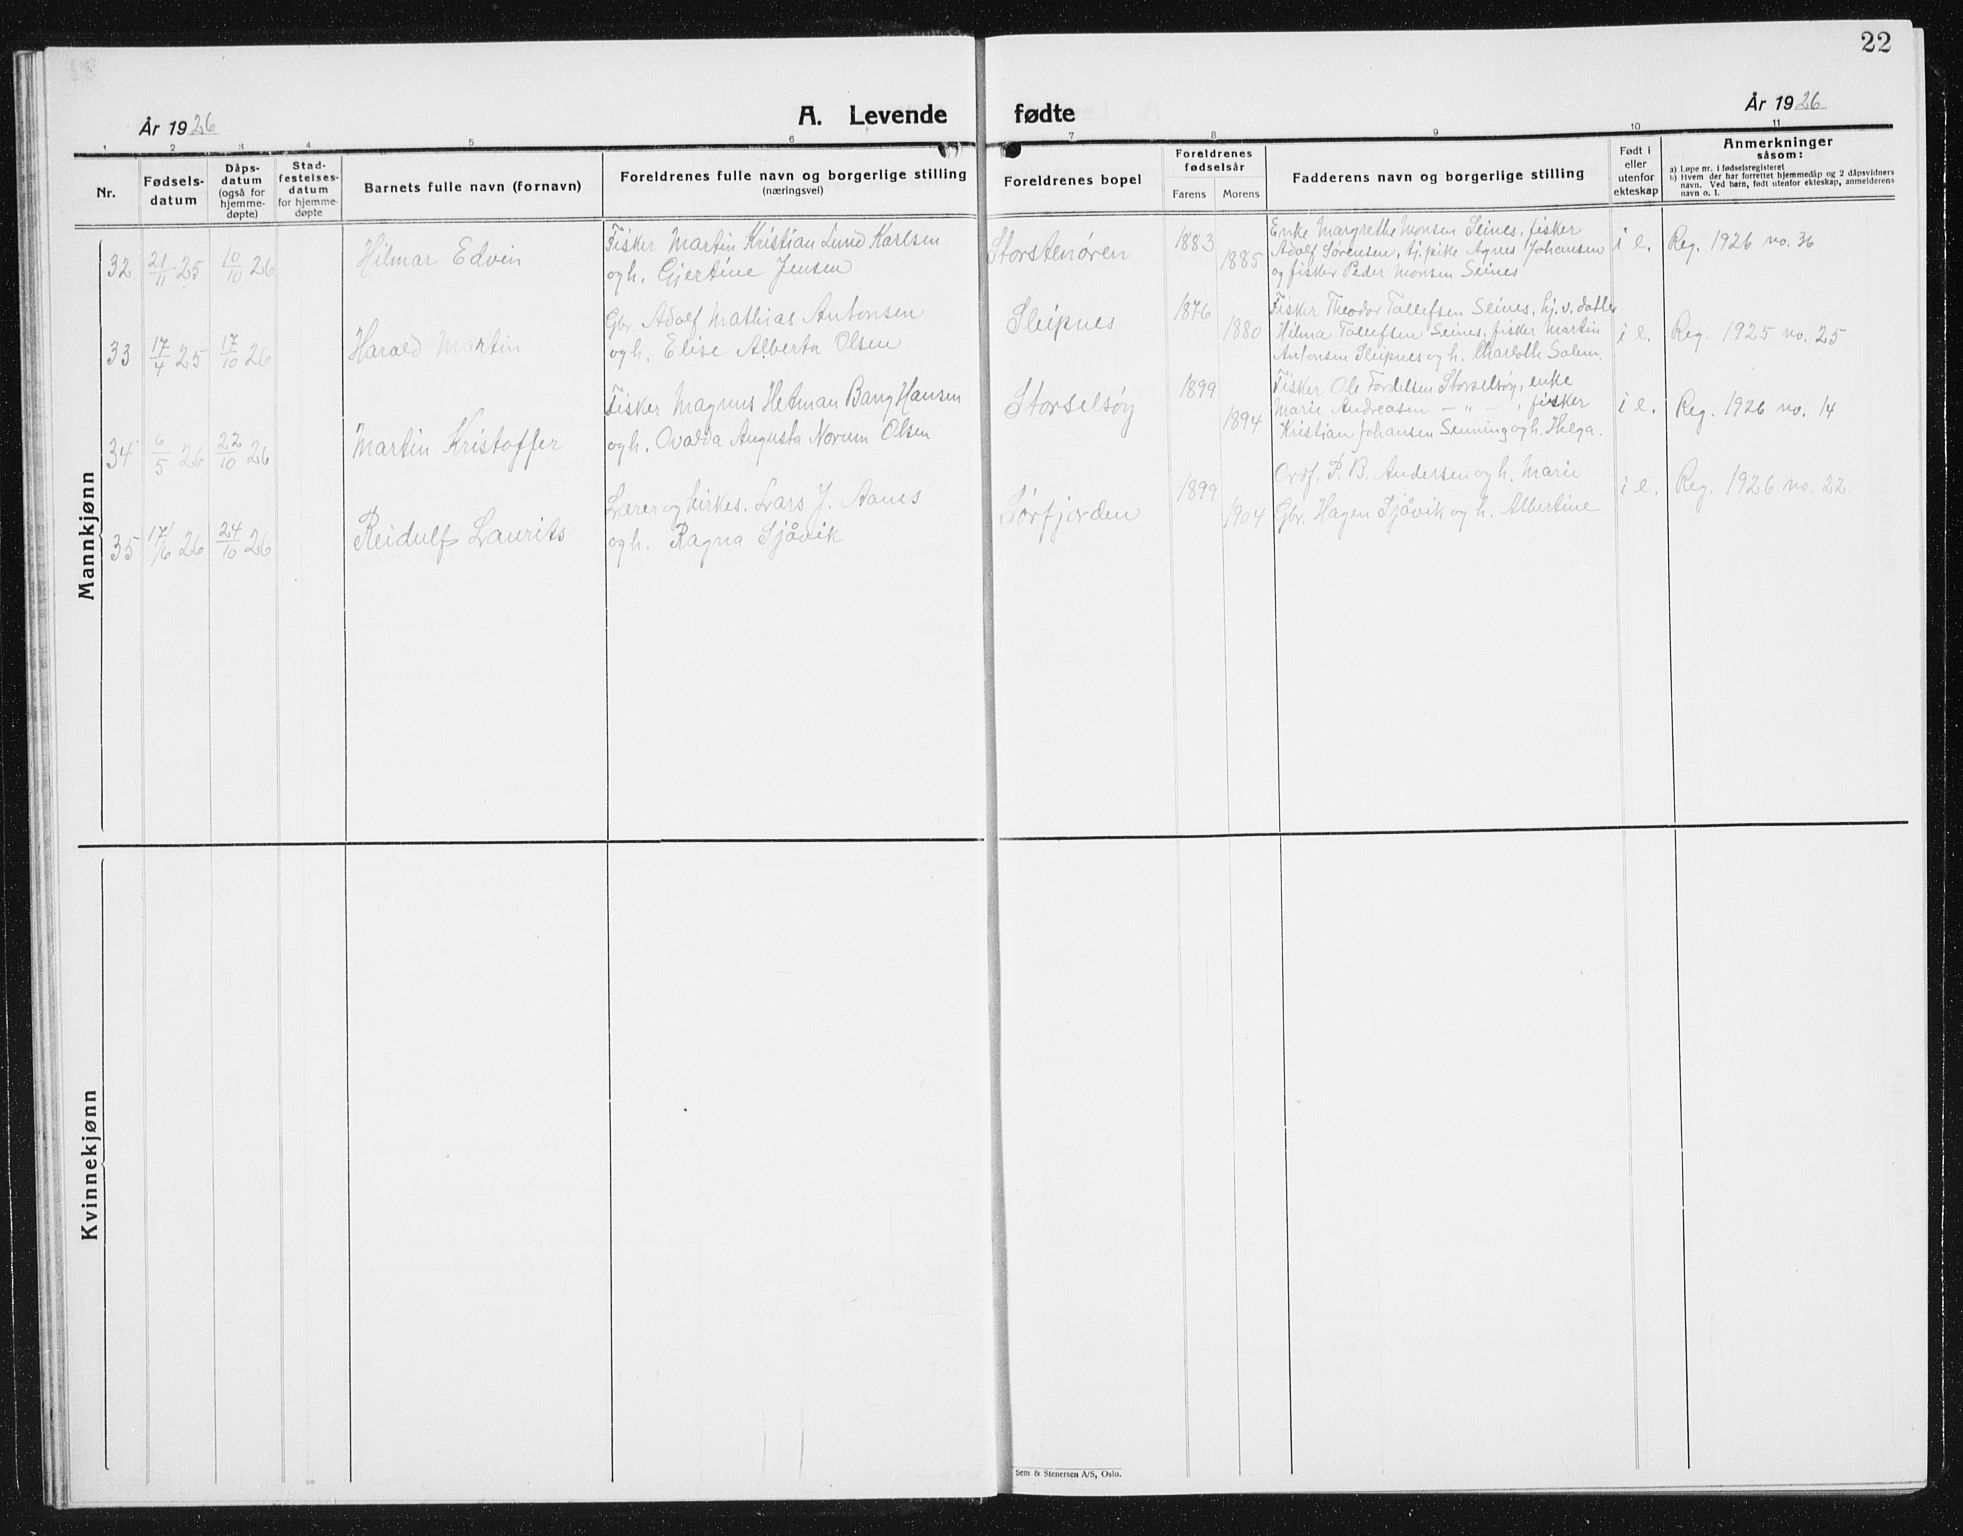 22
År 1926
A. Levende fødte
År 1926
1 2 3 4 5 6 7 8 9 10 11
Nr.
Fødsels-
datum
Dåps-
datum
(også for
hjemme-
døpte)
Stad-
festelses-
datum
for hjemme-
døpte
Barnets fulle navn (fornavn)
Foreldrenes fulle navn og borgerlige stilling
(næringsvei)
Foreldrenes bopel
Foreldrenes
fødselsår
Farens Morens
Fadderens navn og borgerlige stilling
Født i
eller
utenfor
ekteskap
Anmerkninger
såsom:
a) Løpe nr. i fødselsregisteret
b) Hvem der har forrettet hjemmedåp og 2 dåpsvidners
navn. Ved barn, født utenfor ekteskap, anmelderens
navn o. l.
Mannkjønn
32 21/11 25 10/10 26 Hilmar Edvin
Fisker Martin Kristian Lund Karlsen
og h. Gjertine Jensen
Storstenøren 1883 1885
Enke Margrethe Monsen Seines, fisker
Adolf Sørensen, tj.pike Agnes Johansen
og fisker Peder Monsen Seines
i e. Reg. 1926 no. 36
33 17/4 25 17/10 26 Harald Martin
Gbr. Adolf Mathias Antonsen
og h. Elise Alberta Olsen
Sleipnes 1876 1880
Fisker Theodor Tollefsen Seines, hj. v. datter
Hilma Tollefsen Seines, fisker Martin
Antonsen Sleipnes og h. Charlotte Salem.
i e. Reg. 1925 no. 25
34 6/5 26 22/10 26 Martin Kristoffer
Fisker Magnus Hetman Bang Hansen
og h. Ovalda Augusta Norum Olsen
Storselsøy 1899 1894
Fisker Ole Storselsøy, enke
Marie Andreasen — " — , fisker
Kristian Johansen og h. Helga.
i e. Reg. 1926 no. 14
35 17/6 26 24/10 26 Reidulf Laurits
Lærer og kirkes. Lars J. Aanes
og h. Ragna Sjåvik
Sørfjorden 1899 1904
Ordf. P. B. Andersen og h. Marie
Gbr. Hagen Sjåvik og h. Albertine
i e. Reg. 1926 no. 22.
Kvinnekjønn
Sem & Stenersen A/S, Oslo.